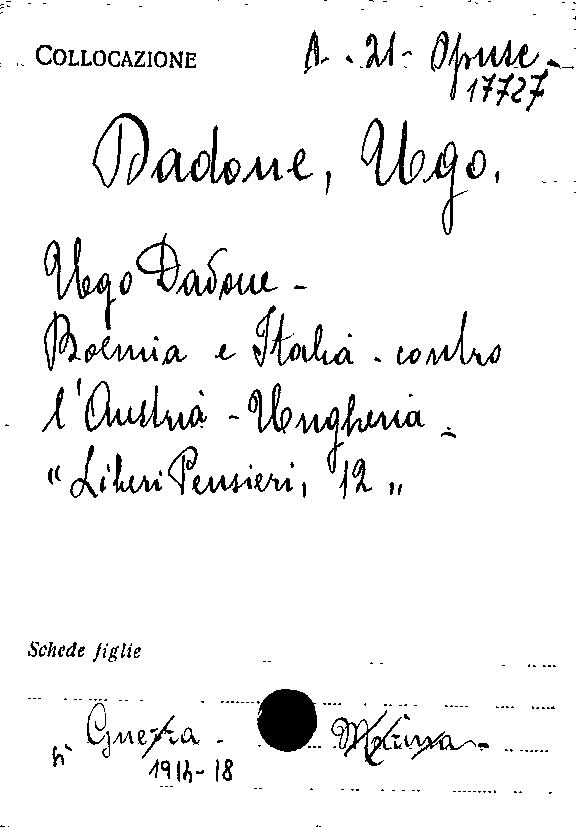 COLLOCAZIONE A - 21 - Opusc -
17727
Dadone, Ugo.
Ugo Dadone -
Boemia e Italia - contro
l'Austria - Ungheria -
"Liberi Pensieri, 12"
Schede figlie
Guerra -
1914-18